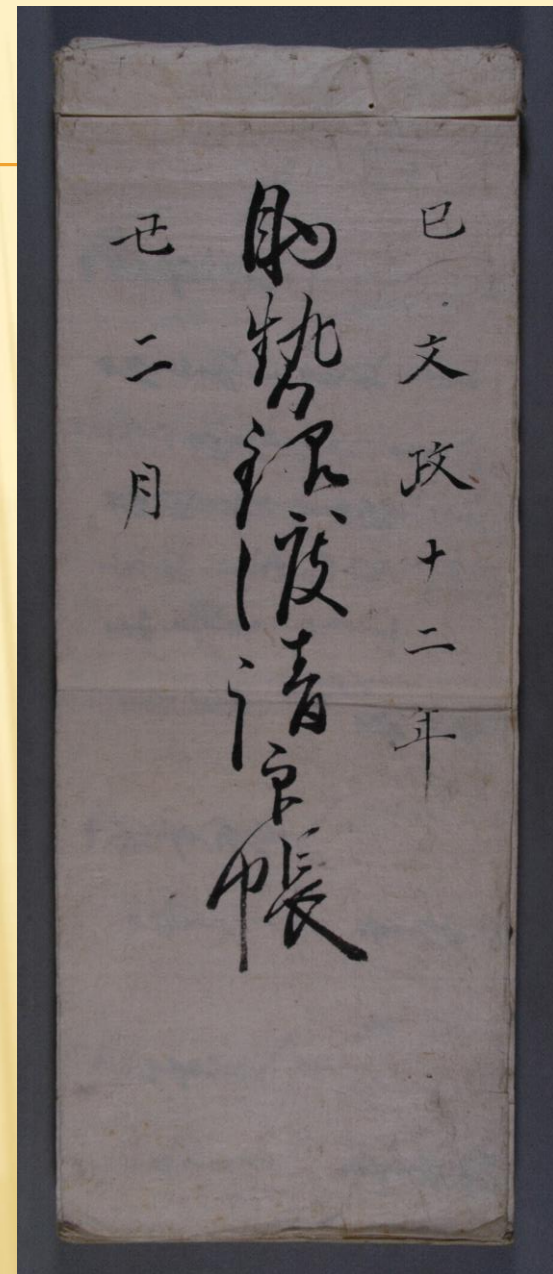 己文政十二年
助勢銀渡請印帳
丑二月